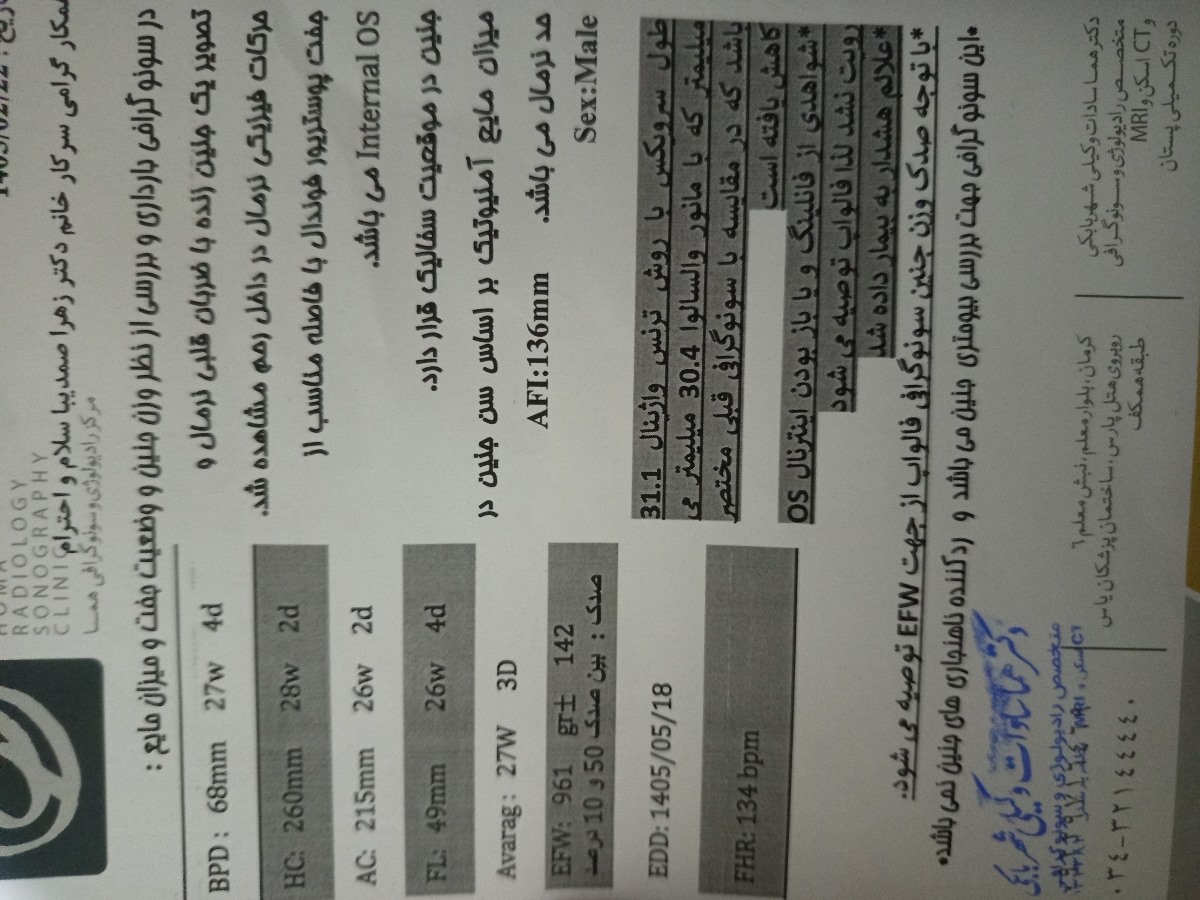 RADIOLOGY
SONOGRAPHY
CLINIC
مرکز رادیولوژی و سونوگرافی هما
همکار گرامی سرکار خانم دکتر زهرا صمدیبا سلام و احترام
در سونوگرافی بارداری و بررسی از نظر وزن جنین و وضعیت جفت و میزان مایع :
تصویر یک جنین زنده با ضربان قلبی نرمال و
حرکات فیزیکی نرمال در داخل رحم مشاهده شد.
جفت پوستریور فوندال با فاصله مناسب از
Internal OS می باشد.
جنین در موقعیت سفالیک قرار دارد.
میزان مایع آمنیوتیک بر اساس سن جنین در
حد نرمال می باشد. AFI:136mm
Sex:Male
BPD : 68mm 27w 4d
HC: 260mm 28w 2d
AC: 215mm 26w 2d
FL: 49mm 26w 4d
Avarag : 27W 3D
EFW: 961 gr± 142
صدک : بین صدک 50 و 10 درصد
EDD: 1405/05/18
FHR: 134 bpm
طول سرویکس با روش ترنس واژینال 31.1
میلیمتر که با مانور والسالوا 30.4 میلیمتر می
باشد که در مقایسه با سونوگرافی قبلی مختصر
کاهش یافته است
*شواهدی از فانلینگ و یا باز بودن اینترنال OS
رویت نشد لذا فالواپ توصیه می شود
*علائم هشدار به بیمار داده شد
*با توجه صدک وزن جنین سونوگرافی فالواپ از جهت EFW توصیه می شود.
*این سونوگرافی جهت بررسی بیومتری جنین می باشد و ردکننده ناهنجاری های جنین نمی باشد*
دکتر هما سادات وکیلی شهربابکی
متخصص رادیولوژی و سونوگرافی
و CT اسکن و MRI
دوره تکمیلی پستان
کرمان، بلوار معلم، نبش معلم ٦
روبروی هتل پارس، ساختمان پزشکان یاس
طبقه همکف
٠٣٤-٣٢١٤٤٤٤٠
دکتر هما سادات وکیلی شهربابکی
متخصص رادیولوژی و سونوگرافی